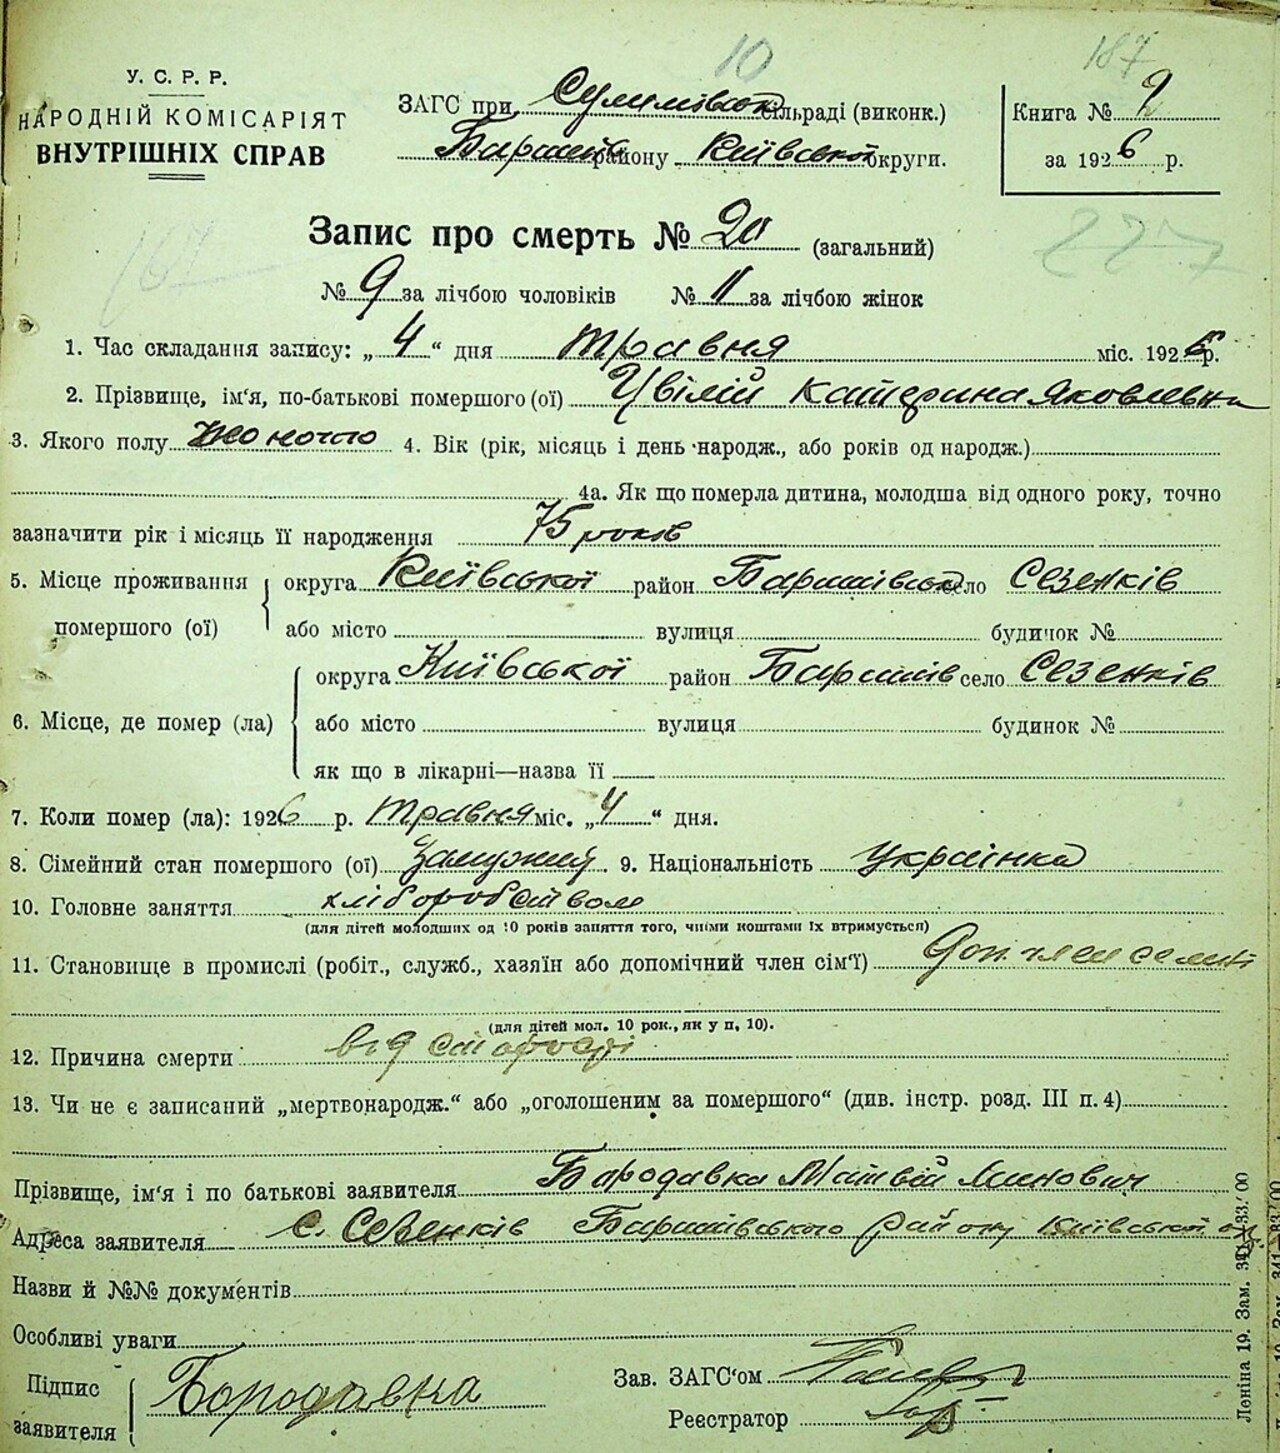 10
187
У. С. Р. Р.
НАРОДНІЙ КОМІСАРІЯТ
ВНУТРІШНІХ СПРАВ
ЗАГС при Сулимівськ сільраді (виконк.)
Баришів району Київської округи.
Книга № 2
за 1926 р.
Запис про смерть № 20 (загальний)
227
№ 9 за лічбою чоловіків № 11 за лічбою жінок
1. Час складання запису: „ 4 “ дня травня міс. 1926 р.
2. Прізвище, ім'я, по-батькові помершого (ої) Цвілій Катерина Яковлевна
3. Якого полу жоночого 4. Вік (рік, місяць і день народж., або років од народж.)
4а. Як що померла дитина, молодша від одного року, точно
зазначити рік і місяць її народження 75 років
5. Місце проживання помершого (ої) округа Київської район Баришівськ село Сезенків
або місто вулиця будинок №
6. Місце, де помер (ла) округа Київської район Баришів село Сезенків
або місто вулиця будинок №
як що в лікарні—назва її
7. Коли помер (ла): 1926 р. травня міс. „ 4 “ дня.
8. Сімейний стан помершого (ої) замужня. 9. Національність українка
10. Головне заняття хліборобством
(для дітей молодших од 10 років заняття того, чиїми коштами їх втримується)
11. Становище в промислі (робіт., служб., хазяїн або допомічний член сім'ї) Доп. член семьї
(для дітей мол. 10 рок., як у п, 10).
12. Причина смерти від старости
13. Чи не є записаний „мертвонародж.“ або „оголошеним за помершого“ (див. інстр. розд. III п. 4)
Прізвище, ім'я і по батькові заявителя Бородавка Матвій Минович
Адреса заявителя с. Сезенків Баришівського району Київської окр.
Назви й №№ документів
Особливі уваги
Підпис заявителя Бородавка
Зав. ЗАГС'ом
Реєстратор
Леніна 19. Зам. 341—83.000